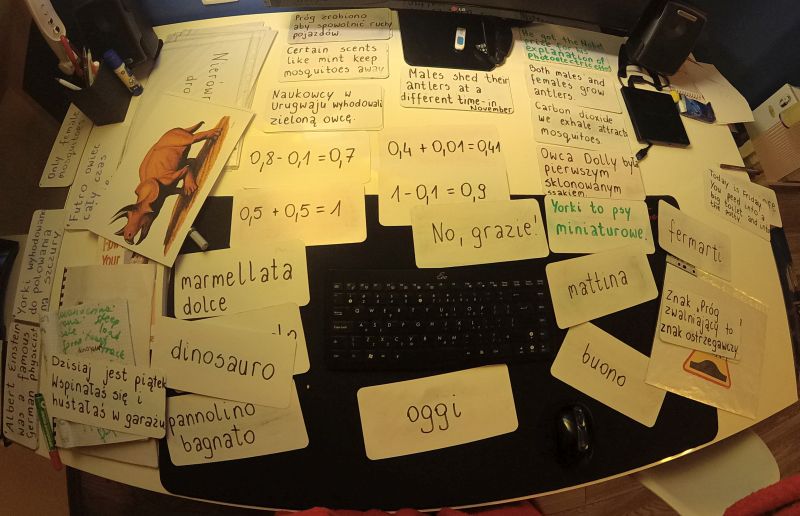 Próg zrobiono
aby spowolnić ruchy
pojazdów.
Certain scents
like mint keep
mosquitoes away
Naukowcy w
Urugwaju wyhodowali
zieloną owcę.
LG
Males shed their
antlers at a
different time - in
November
He got the Nobel
prize for his
explanation of
Photoelectric effect
Both males and
females grow
antlers.
Carbon dioxide
we exhale attracts
mosquitoes.
Owca Dolly była
pierwszym
sklonowanym
ssakiem.
Yorki to psy
miniaturowe.
Today is Friday
You peed into a
big toilet and into
the potty
Nierówn
dro
Only female
mosquitoes
Futro owiec
cały czas
Yorki wyhodowano
do polowania
na szczury
Albert Einstein
was a famous
German physicist
0,8 - 0,1 = 0,7
0,4 + 0,01 = 0,41
0,5 + 0,5 = 1
1 - 0,1 = 0,9
No, grazie!
fermarti
marmellata
dolce
mattina
Znak „Próg
zwalniający" to
znak ostrzegawczy
Your
dinosauro
buono
Dzisiaj jest piątek
Wspinałaś się i
huśtałaś w garażu
pannolino
bagnato
oggi